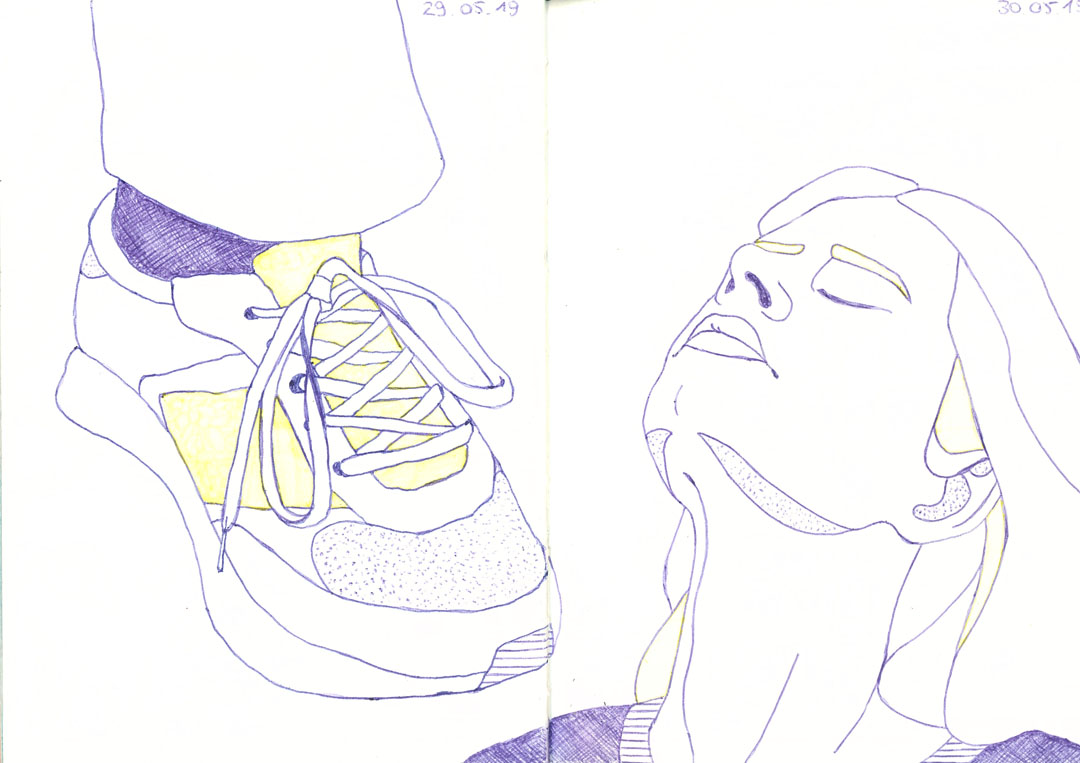 29.05.19
30 05.19